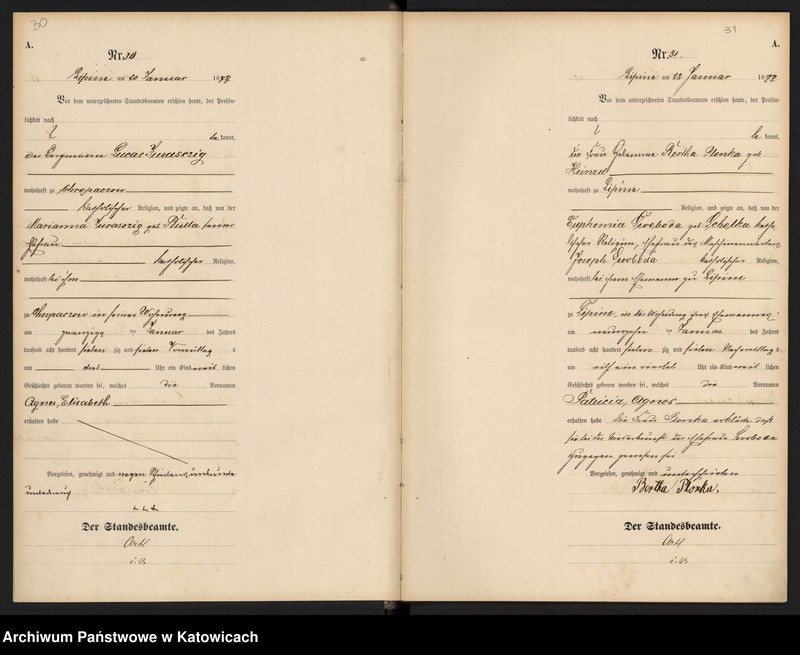 30
A.
Nr. 30
Lipine am 20 Januar 1877
Vor dem unterzeichneten Standesbeamten erschien heute, der Persön-
lichkeit nach
be kannt,
der Bergmann Lucas Juraszczig
wohnhaft zu Chropaczow
katholischer Religion, und zeigte an, daß von der
Marianna Juraszczig geb. seiner
Ehefrau
katholischer Religion,
wohnhaft bei ihm
zu Chropaczow in seiner Wohnung
am zwanzigsten Januar des Jahres
tausend acht hundert sieben zig und sieben Vormittag s
um drei Uhr ein Kind weib lichen
Geschlechts geboren worden sei, welches die Vornamen
Agnes, Elisabeth
erhalten habe
Vorgelesen, genehmigt und wegen Schreibensunkunde
+++
Der Standesbeamte.
i. V.
31
A.
Nr. 31.
Lipine am 22 Januar 1877
Vor dem unterzeichneten Standesbeamten erschien heute, der Persön-
lichkeit nach
be kannt,
die Frau Hebamme Bertha Plonka geb
wohnhaft zu Lipine
Religion, und zeigte an, daß von der
Euphemia Swoboda geb. katho-
lischer Religion, Ehefrau des
Joseph Swoboda katholischer Religion,
wohnhaft bei ihrem Ehemanne zu Lipine
zu Lipine, in der Wohnung ihres Ehemannes
am neunzehn ten Januar des Jahres
tausend acht hundert sieben zig und sieben Nachmittag s
um elf ein viertel Uhr ein Kind weib lichen
Geschlechts geboren worden sei, welches die Vornamen
Patricia, Agnes
erhalten habe Die Frau Plonka erklärte daß
sie bei der Niederkunft der Ehefrau Swoboda
zugegen gewesen sei
Vorgelesen, genehmigt und unterschrieben
Bertha Plonka.
Der Standesbeamte.
i. V.
Archiwum Państwowe w Katowicach